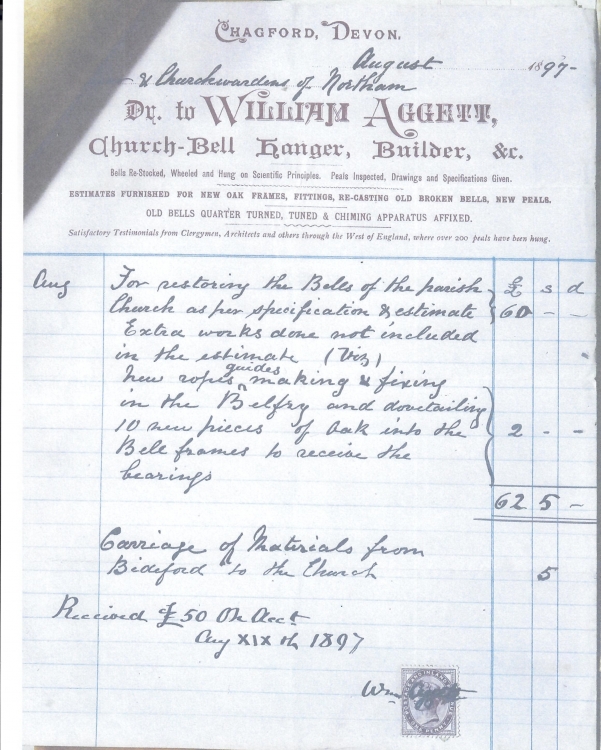 CHAGFORD, DEVON.
August 1897-
& Churchwardens of Northam
Dr. to WILLIAM AGGETT,
Church-Bell Hanger, Builder, &c.
Bells Re-Stocked, Wheeled and Hung on Scientific Principles. Peals Inspected, Drawings and Specifications Given.
ESTIMATES FURNISHED FOR NEW OAK FRAMES, FITTINGS, RE-CASTING OLD BROKEN BELLS, NEW PEALS.
OLD BELLS QUARTER TURNED, TUNED & CHIMING APPARATUS AFFIXED.
Satisfactory Testimonials from Clergymen, Architects and others through the West of England, where over 200 peals have been hung.
Aug For restoring the Bells of the parish £ s d
Church as per specification & estimate 60 - -
Extra works done not included
in the estimate (Viz)
New ropes guides making & fixing
in the Belfry and dovetailing
10 new pieces of Oak into the 2 - -
Bell frames to receive the
bearings
62 5 -
Carriage of Materials from
Bideford to the Church 5
Received £50 On Acct
Aug XIX th 1897
Wm Aggett